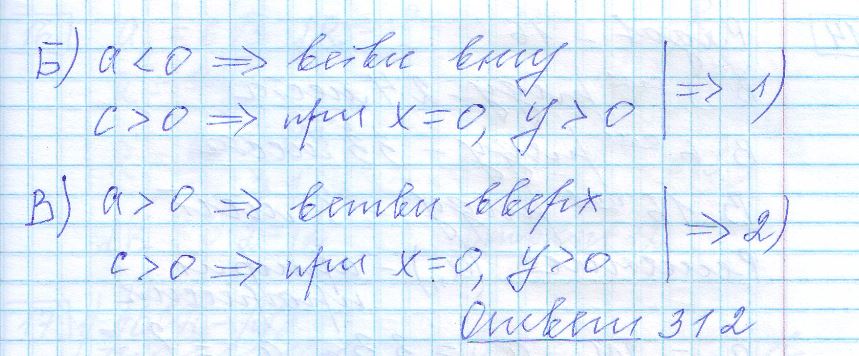 Б) a < 0 => ветви вниз | => 1)
c > 0 => при x = 0, y > 0
В) a > 0 => ветви вверх | => 2)
c > 0 => при x = 0, y > 0
Ответ 312